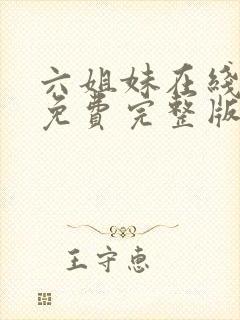 六姐妹在线
免費完整版
王守惠